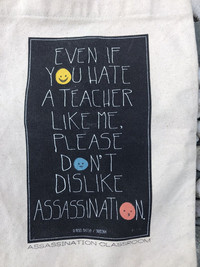 EVEN IF
YOU HATE
A TEACHER
LIKE ME,
PLEASE
DON'T
DISLIKE
ASSASSINATION
ASSASSINATION CLASSROOM